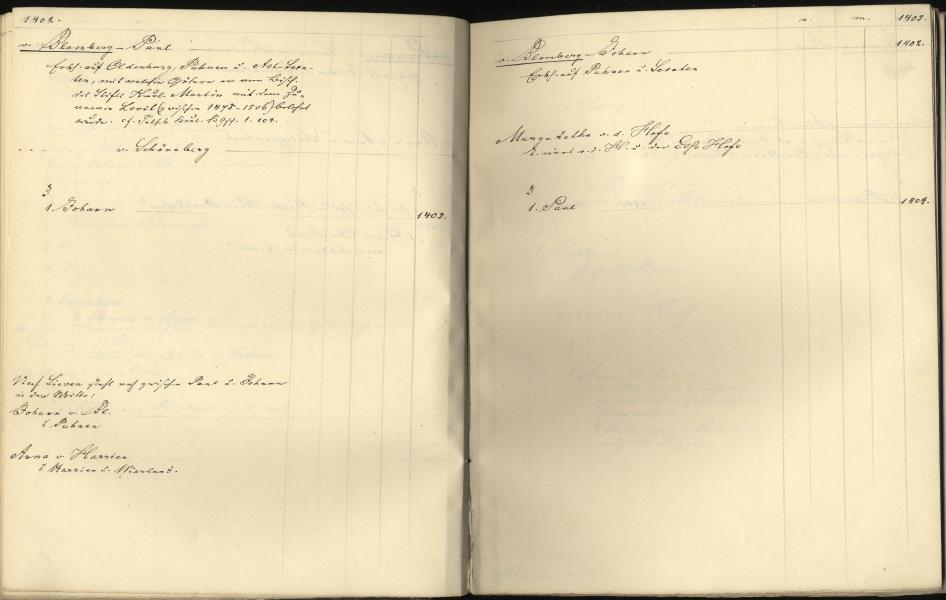 1402.
v. Blomberg - Paul
Erbh. auf Oldenburg, Puhnen u. Adl. Sera-
ten, mit welchen Gütern er vom Bisch.
des Stifts Kurl. Martin mit dem Zu-
namen Levit (zwischen 1473-1500) belehnt
wurde. cf. 1. 104.
v. Schöneberg
3
1. Johann 1403.
Nach Lieven steht noch zwischen Paul u. Johann
in der Mitte:
Johann v. Bl.
a Puhnen
Anna v. Harrien
a Harrien u. Wierland.
n. m. 1403.
v. Blomberg - Johann 1402.
Erbh. auf Puhnen u. Seraten
Margaretha v. d. Hofe
v. d. u. der Hofe
3
1. Paul 1404.